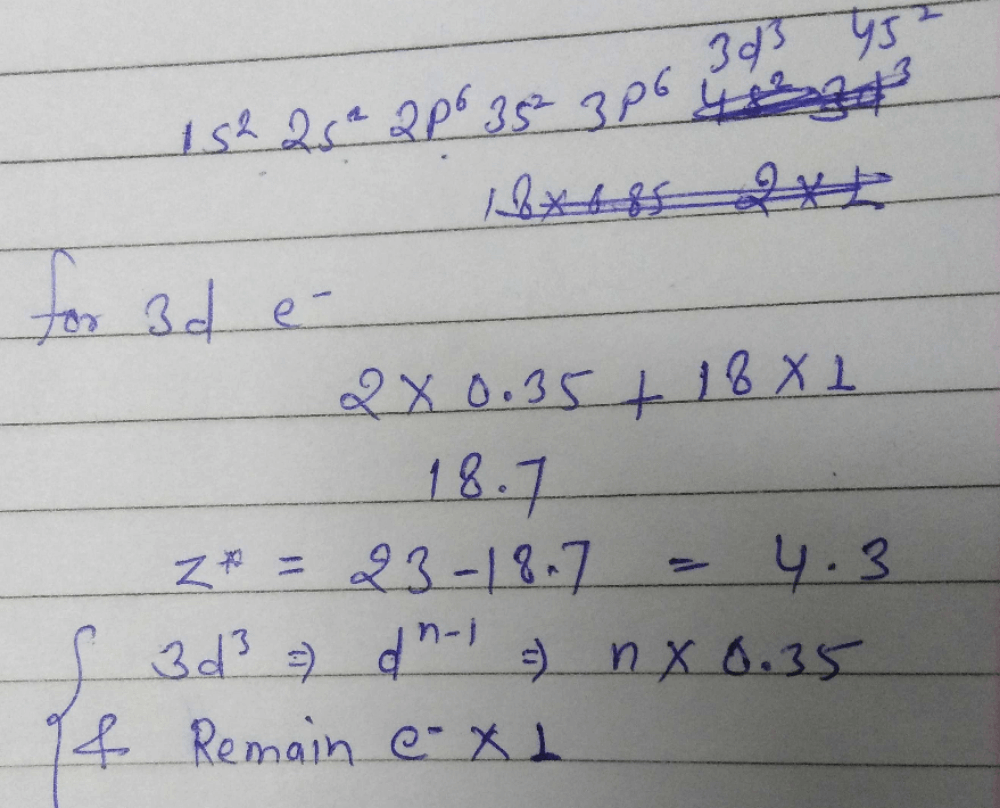 3d³ 4s²
1s² 2s² 2p⁶ 3s² 3p⁶ 4s² 3d³
18×0.85 2×1
for 3d e⁻
2 × 0.35 + 18 × 1
18.7
z* = 23 - 18.7 = 4.3
3d³ ⇒ dⁿ⁻¹ ⇒ n × 0.35
& Remain e⁻ × 1